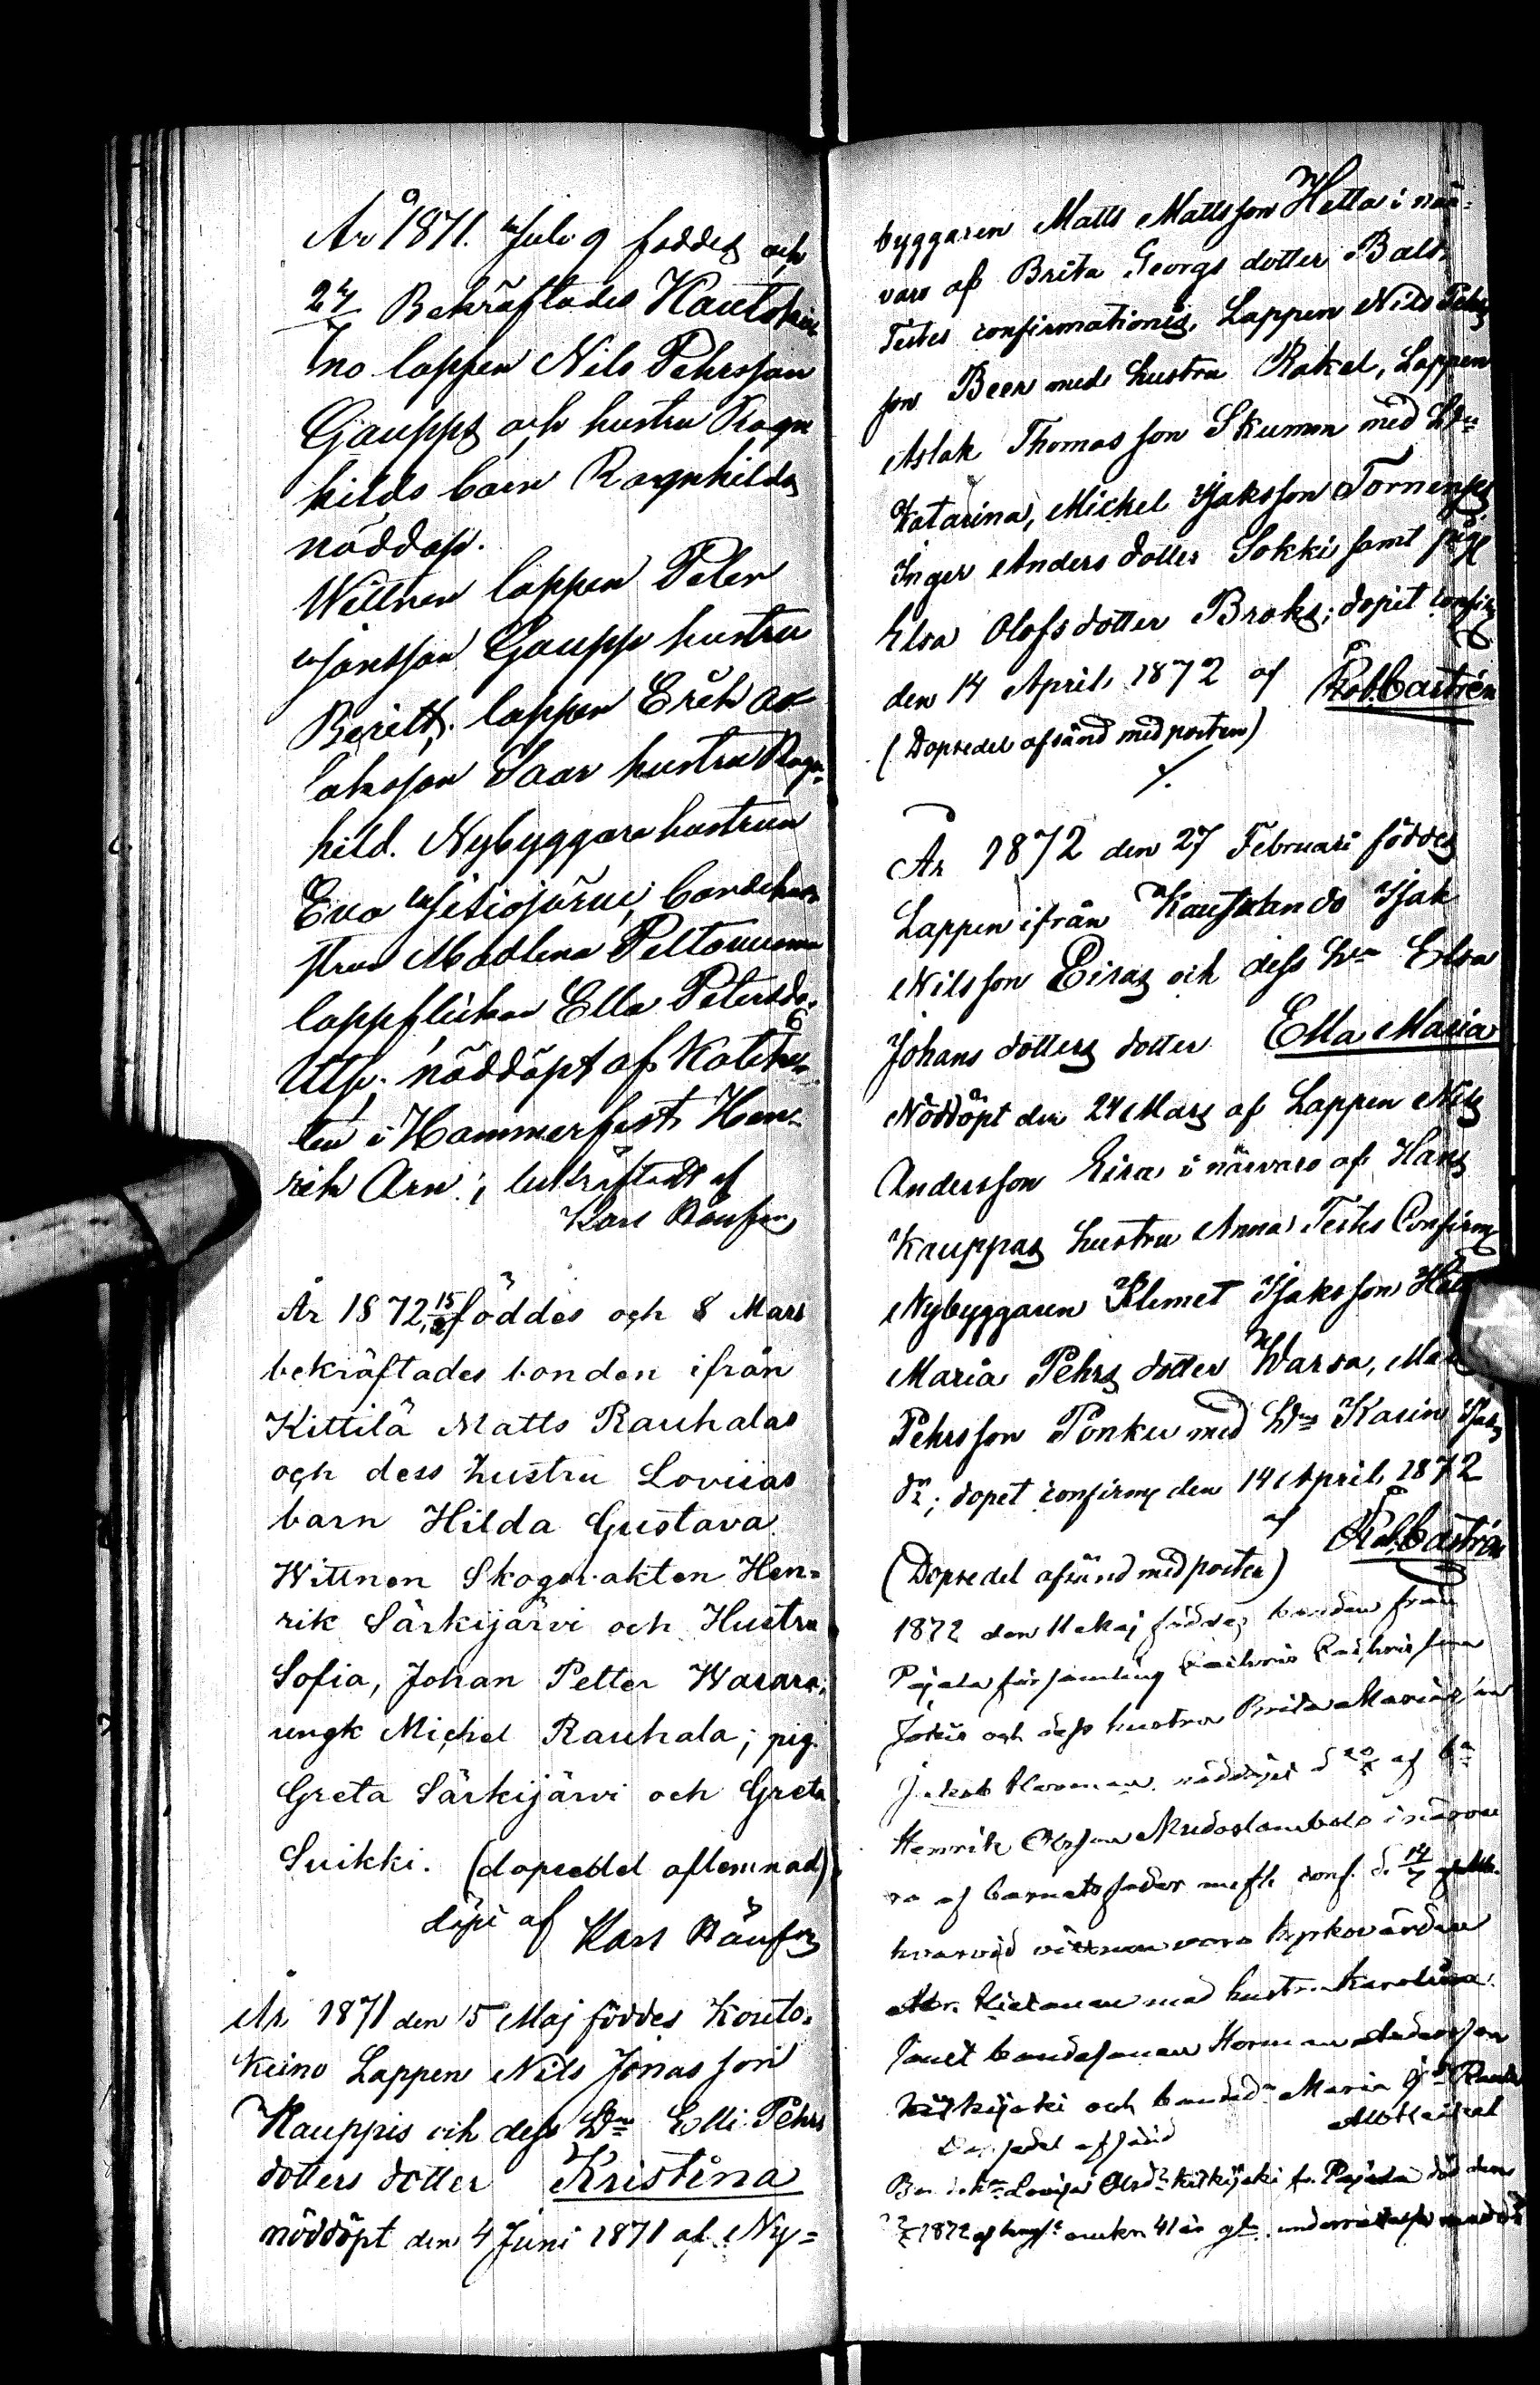 År 1871. Juli 9 föddes och
27/7 Bekräftades Kautokei
no lappen Nils Pehrsson
Gaupps och hustru Ragn
hilds barn Ragnhilds
nöddop.
Wittnen lappen Peter
Jonsson Gaupp hustru
Beritt; lappen Erik As
laksson Saar hustru Ragn-
hild. Nybyggare hustrun
Eva Jesiojärvi, bondehus
trun Madlena Peltovuoma
lappflickan Ella Petersdr.
Utsi. nöddöpt af Kateke-
ten i Hammerfest Hen-
rik Arn; bekräftadt af
Karl
År 1872, 15/2 föddes och 8 Mars
bekräftades bonden ifrån
Kittilä Matts Rauhalas
och dess hustru Lovisas
barn Hilda Gustava
Wittnen Skogsvakten Hen=
rik Särkijärvi och Hustru
Sofia, Johan Petter
ungk Michel Rauhala; pig.
Greta Särkijärvi och Greta
Suikki. (dopsedel aflemnad)
döpt af Karl
År 1871 den 15 Maj föddes Kouto-
keino Lappen Nils Jonasson
Kauppis och dess Hu Elli Pehrs
dotters dotter Kristina
nöddöpt den 4 Juni 1871 af Ny=
byggaren Matts Mattsson Hetta i när-
varo af Brita Georgs dotter Bals.
Testes confirmationis, Lappen Nils Pehrs
son Beer med hustru Rakel, Lappen
Aslak Thomasson Skumm med Hu
Katarina, Michel Isaksson Tornensis
Inger Anders dotter Sokki samt pig
Elsa Olofsdotter Broks; dopet confir
den 14 April 1872 af Rob. Castrén
(Dopsedel afsänd med posten)
År 1872 den 27 Februari föddes
Lappen ifrån Kautokeino Isak
Nilsson Eiras och dess Hu Elsa
Johans dotters dotter Ella Maria
Nöddöpt den 24 Mars af Lappen Nils
Andersson Eira i närvaro af Hans
Kauppas hustru Anna. Testes Confirm
Nybyggaren Klemet Isaksson
Maria Pehrs dotter Warsa,
Pehrsson Ponku med Hu Karin Isaks
dr; dopet confirm den 14 April 1872
af Rob. Castrén
(Dopsedel afsänd med posten)
1872 den 11 Maj föddes bonden från
Pajala församling
och dess hustru Brita Marias son
Jakob Herman. nöddöpt d af
Henrik Olofsson i närva
ro af barnets fader conf. d. 14/7
hvarvid vittnen voro kyrkovärden
med hustru Karolina.
samt bondesonen Herman Andersson
Kitkijoki och Maria
Dopsedel afsänd
Lovisa Olsdr Kitkijoki fr. Pajala död den
1872 af 41 år gl.